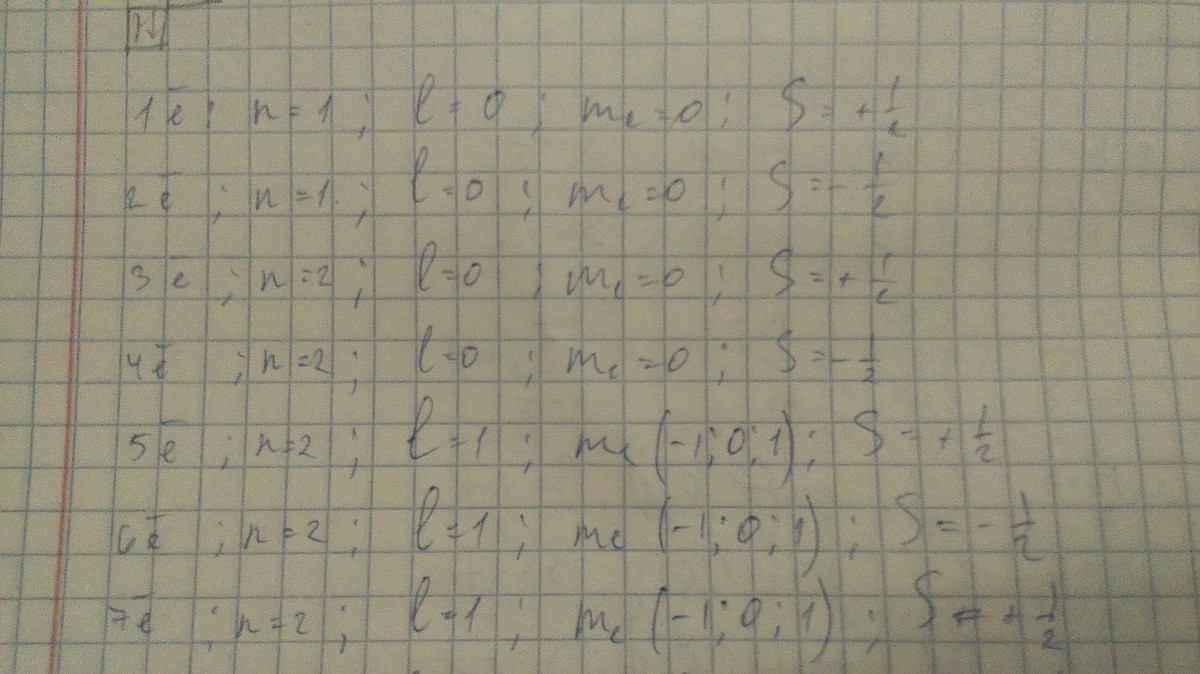 N
1ē: n=1; l=0; mₗ=0; S=+1/2
2ē; n=1; l=0; mₗ=0; S=-1/2
3ē; n=2; l=0; mₗ=0; S=+1/2
4ē; n=2; l=0; mₗ=0; S=-1/2
5ē; n=2; l=1; mₗ(-1;0;1); S=+1/2
6ē; n=2; l=1; mₗ(-1;0;1); S=-1/2
7ē; n=2; l=1; mₗ(-1;0;1); S=+1/2